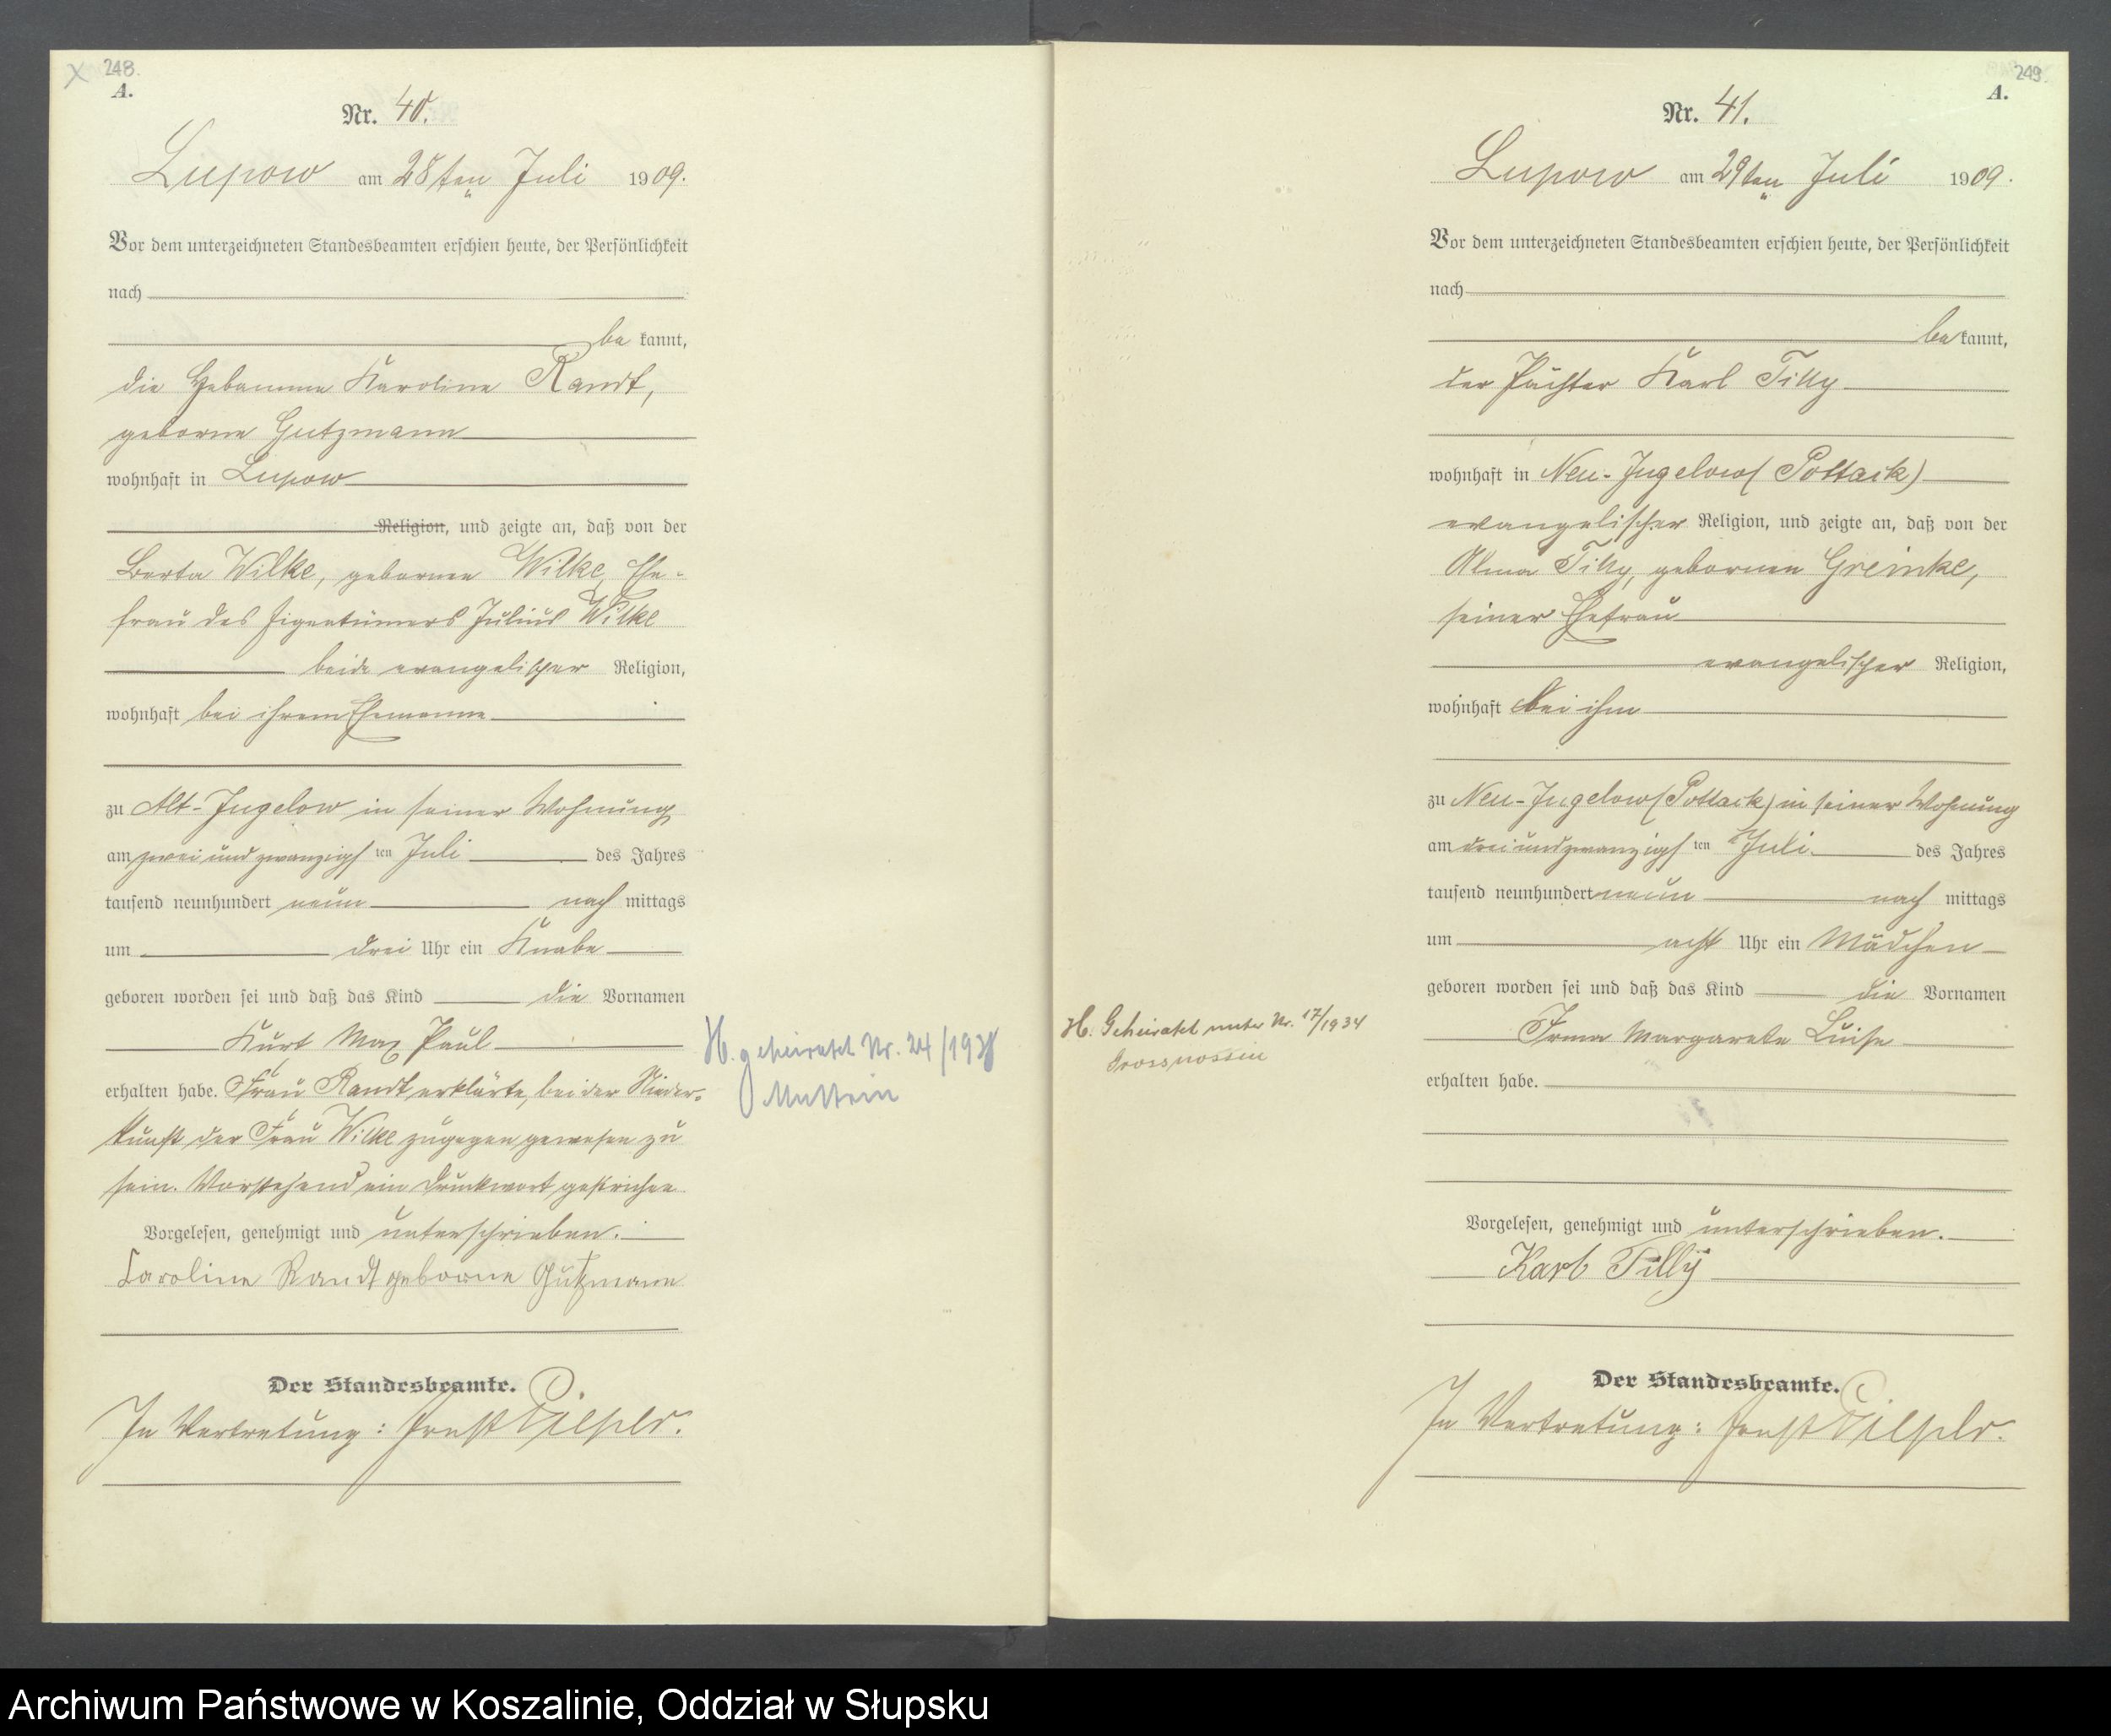 248.
A.
Nr. 40.
Lupow am 28ten Juli 1909.
Vor dem unterzeichneten Standesbeamten erschien heute, der Persönlichkeit
nach
be kannt,
die Hebamme Karoline Randt,
geborne Gutzmann
wohnhaft in Lupow
Religion, und zeigte an, daß von der
Berta Wilke, gebornen Wilke, Ehe-
frau des Eigentümers Julius Wilke
beide evangelischer Religion,
wohnhaft bei ihrem Ehemanne
zu Alt-Jugelow in seiner Wohnung
am zwei und zwanzigsten Juli des Jahres
tausend neunhundert neun nach mittags
um drei Uhr ein Knabe
geboren worden sei und daß das Kind die Vornamen
Kurt Max Paul
erhalten habe. Frau Randt erklärte, bei der Nieder-
kunft der Frau Wilke zugegen gewesen zu
sein. Vorstehend ein Druckwort gestrichen
Vorgelesen, genehmigt und unterschrieben.
Caroline Randt geborne Gutzmann
Der Standesbeamte.
In Vertretung: Ernst
H. geheiratet Nr. 24/1938
Muttrin
249.
A.
Nr. 41.
Lupow am 29ten Juli 1909.
Vor dem unterzeichneten Standesbeamten erschien heute, der Persönlichkeit
nach
be kannt,
der Pächter Karl Tilly
wohnhaft in Neu-Jugelow (Pottack)
evangelischer Religion, und zeigte an, daß von der
Alma Tilly, gebornen Greinke,
seiner Ehefrau
evangelischer Religion,
wohnhaft bei ihm
zu Neu-Jugelow (Pottack) in seiner Wohnung
am drei und zwanzigsten Juli des Jahres
tausend neunhundert neun nach mittags
um acht Uhr ein Mädchen
geboren worden sei und daß das Kind die Vornamen
Irma Margarete Luise
erhalten habe.
Vorgelesen, genehmigt und unterschrieben.
Karl Tilly
Der Standesbeamte.
In Vertretung: Ernst
H. Geheiratet unter Nr. 17/1934
Grossnossin
Archiwum Państwowe w Koszalinie, Oddział w Słupsku